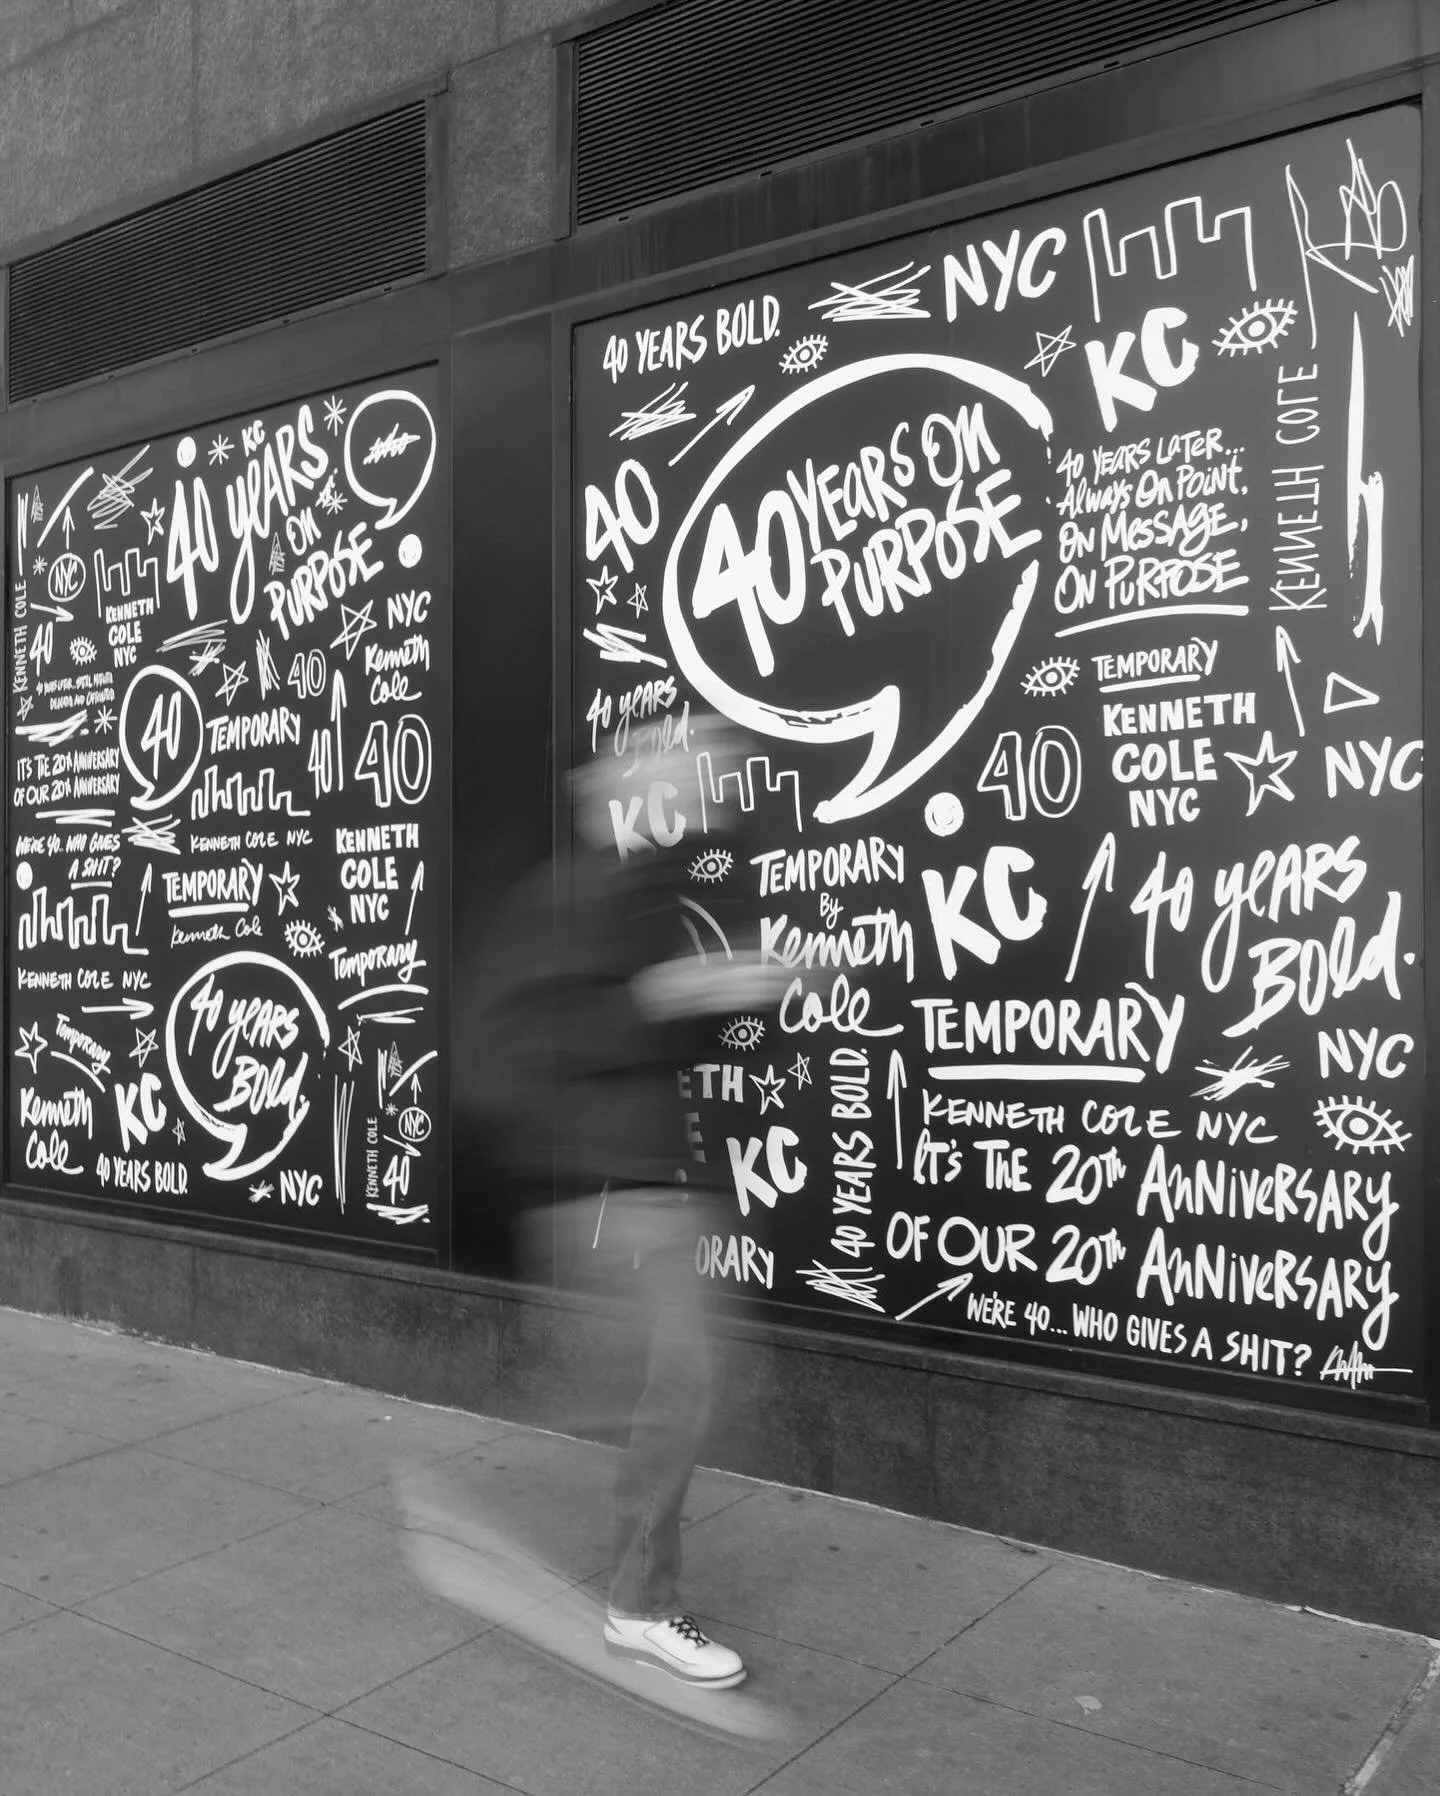 KC
40 YEARS
ON
PURPOSE
NYC
KENNETH COLE
KENNETH
COLE
NYC
40
NYC
Kenneth
Cole
40
40 YEARS LATER...
40
TEMPORARY
40
40
IT'S THE 20th ANNIVERSARY
OF OUR 20th ANNIVERSARY
WE'RE 40... WHO GIVES
A SHIT?
KENNETH COLE NYC
KENNETH
COLE
NYC
TEMPORARY
Kenneth Cole
Temporary
KENNETH COLE NYC
Temporary
40 YEARS
BOLD.
Kenneth
Cole
KC
40 YEARS BOLD.
NYC
KENNETH COLE
NYC
40
40 YEARS BOLD.
NYC
KC
KENNETH COLE
40
40 YEARS ON
PURPOSE
40 YEARS LATER...
ALWAYS ON POINT,
ON MESSAGE,
ON PURPOSE
40 YEARS
BOLD.
KC
TEMPORARY
KENNETH
COLE
NYC
40
NYC
TEMPORARY
BY
Kenneth
Cole
KC
40 YEARS
BOLD.
TEMPORARY
NYC
ETH
E
KC
40 YEARS BOLD.
KENNETH COLE NYC
IT'S THE 20th ANNIVERSARY
OF OUR 20th ANNIVERSARY
ORARY
WE'RE 40... WHO GIVES A SHIT?